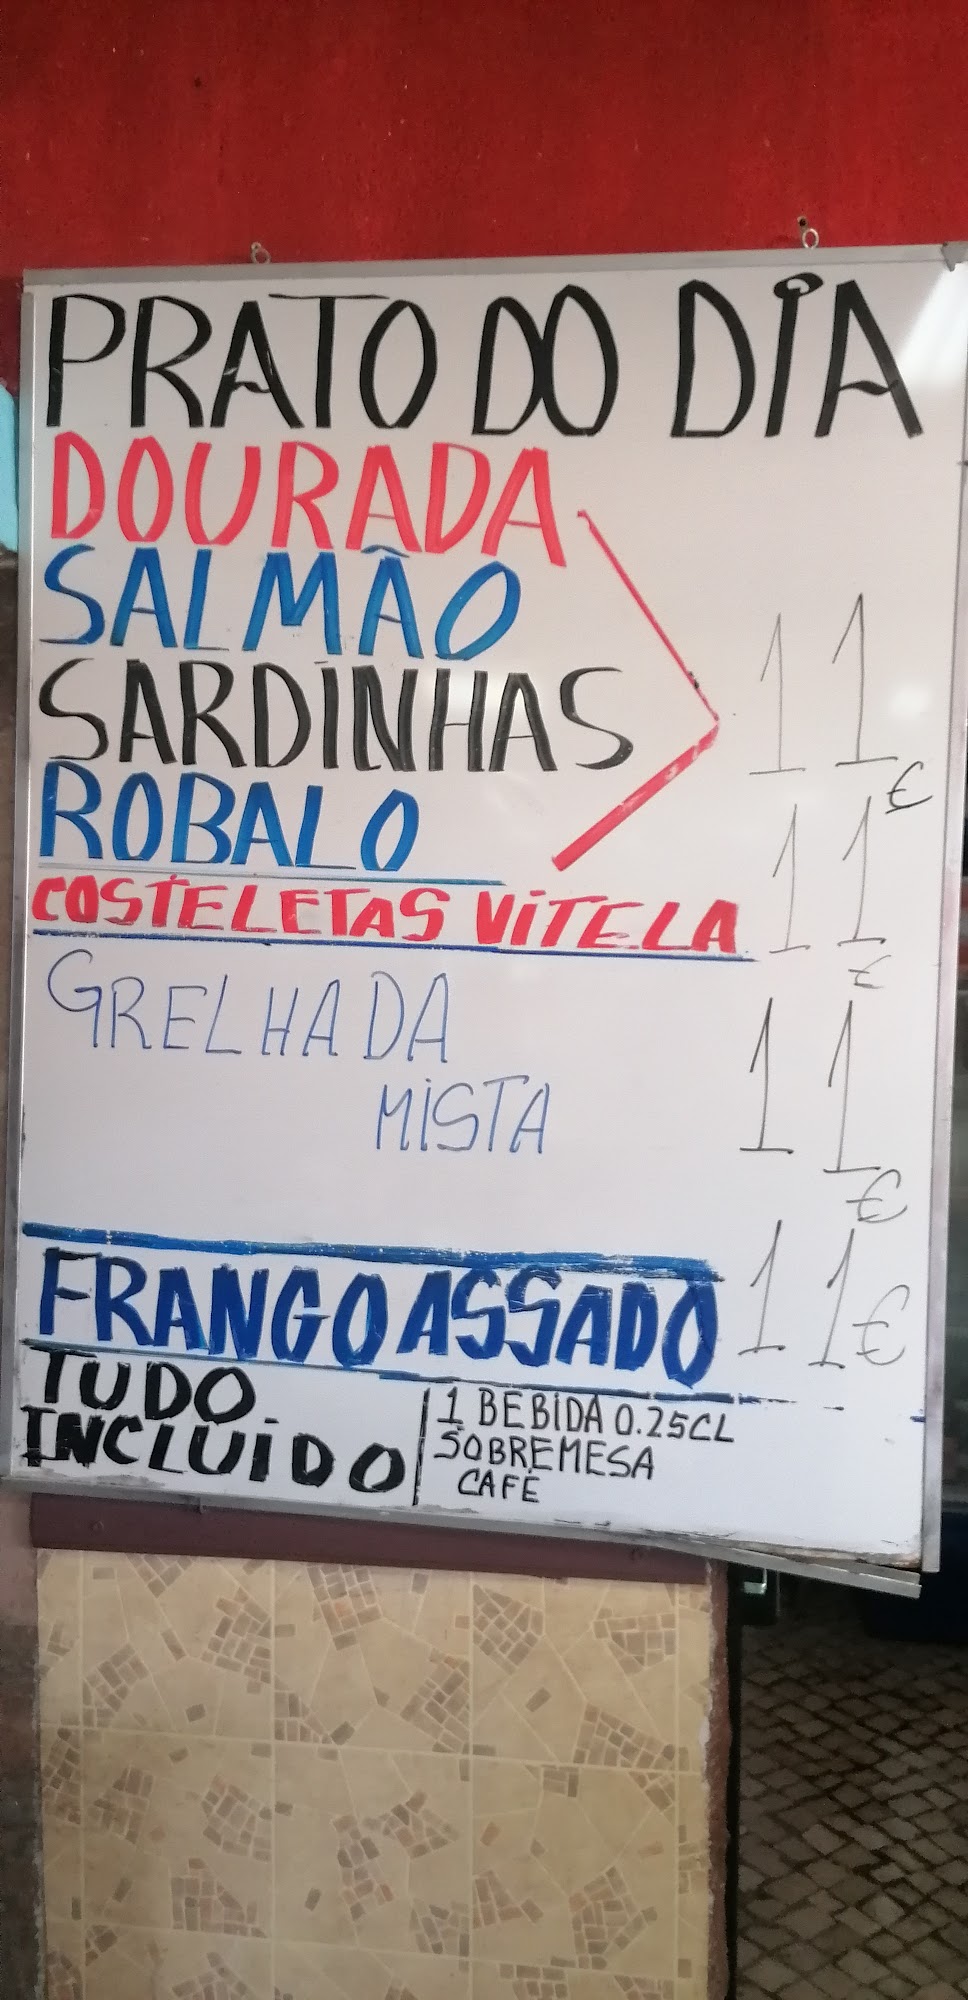 PRATO DO DIA
DOURADA
SALMÃO
SARDINHAS
ROBALO
11 €
COSTELETAS VITELA 11 €
GRELHADA
MISTA
11 €
FRANGO ASSADO 11€
TUDO
INCLUIDO
1 BEBIDA 0.25CL
SOBREMESA
CAFÉ